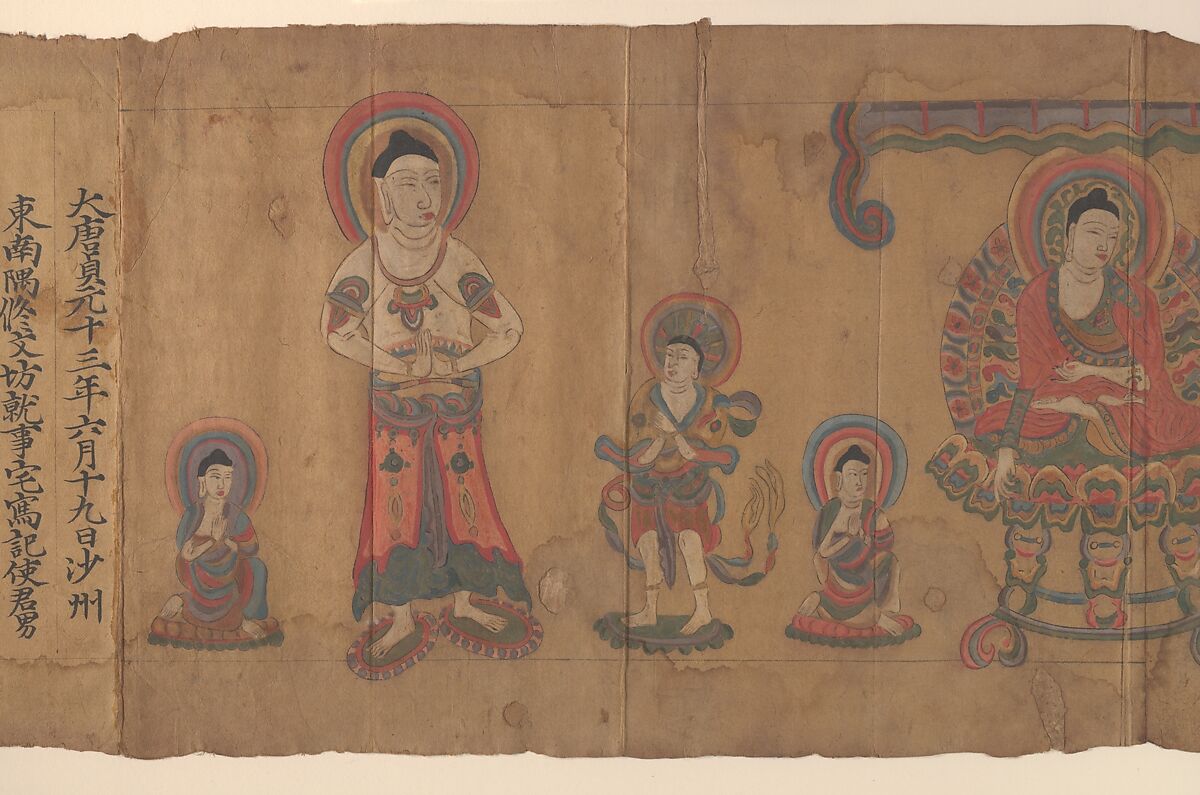 大唐貞元十三年六月十九日沙州
東南隅修文坊就事宅寫記使君男